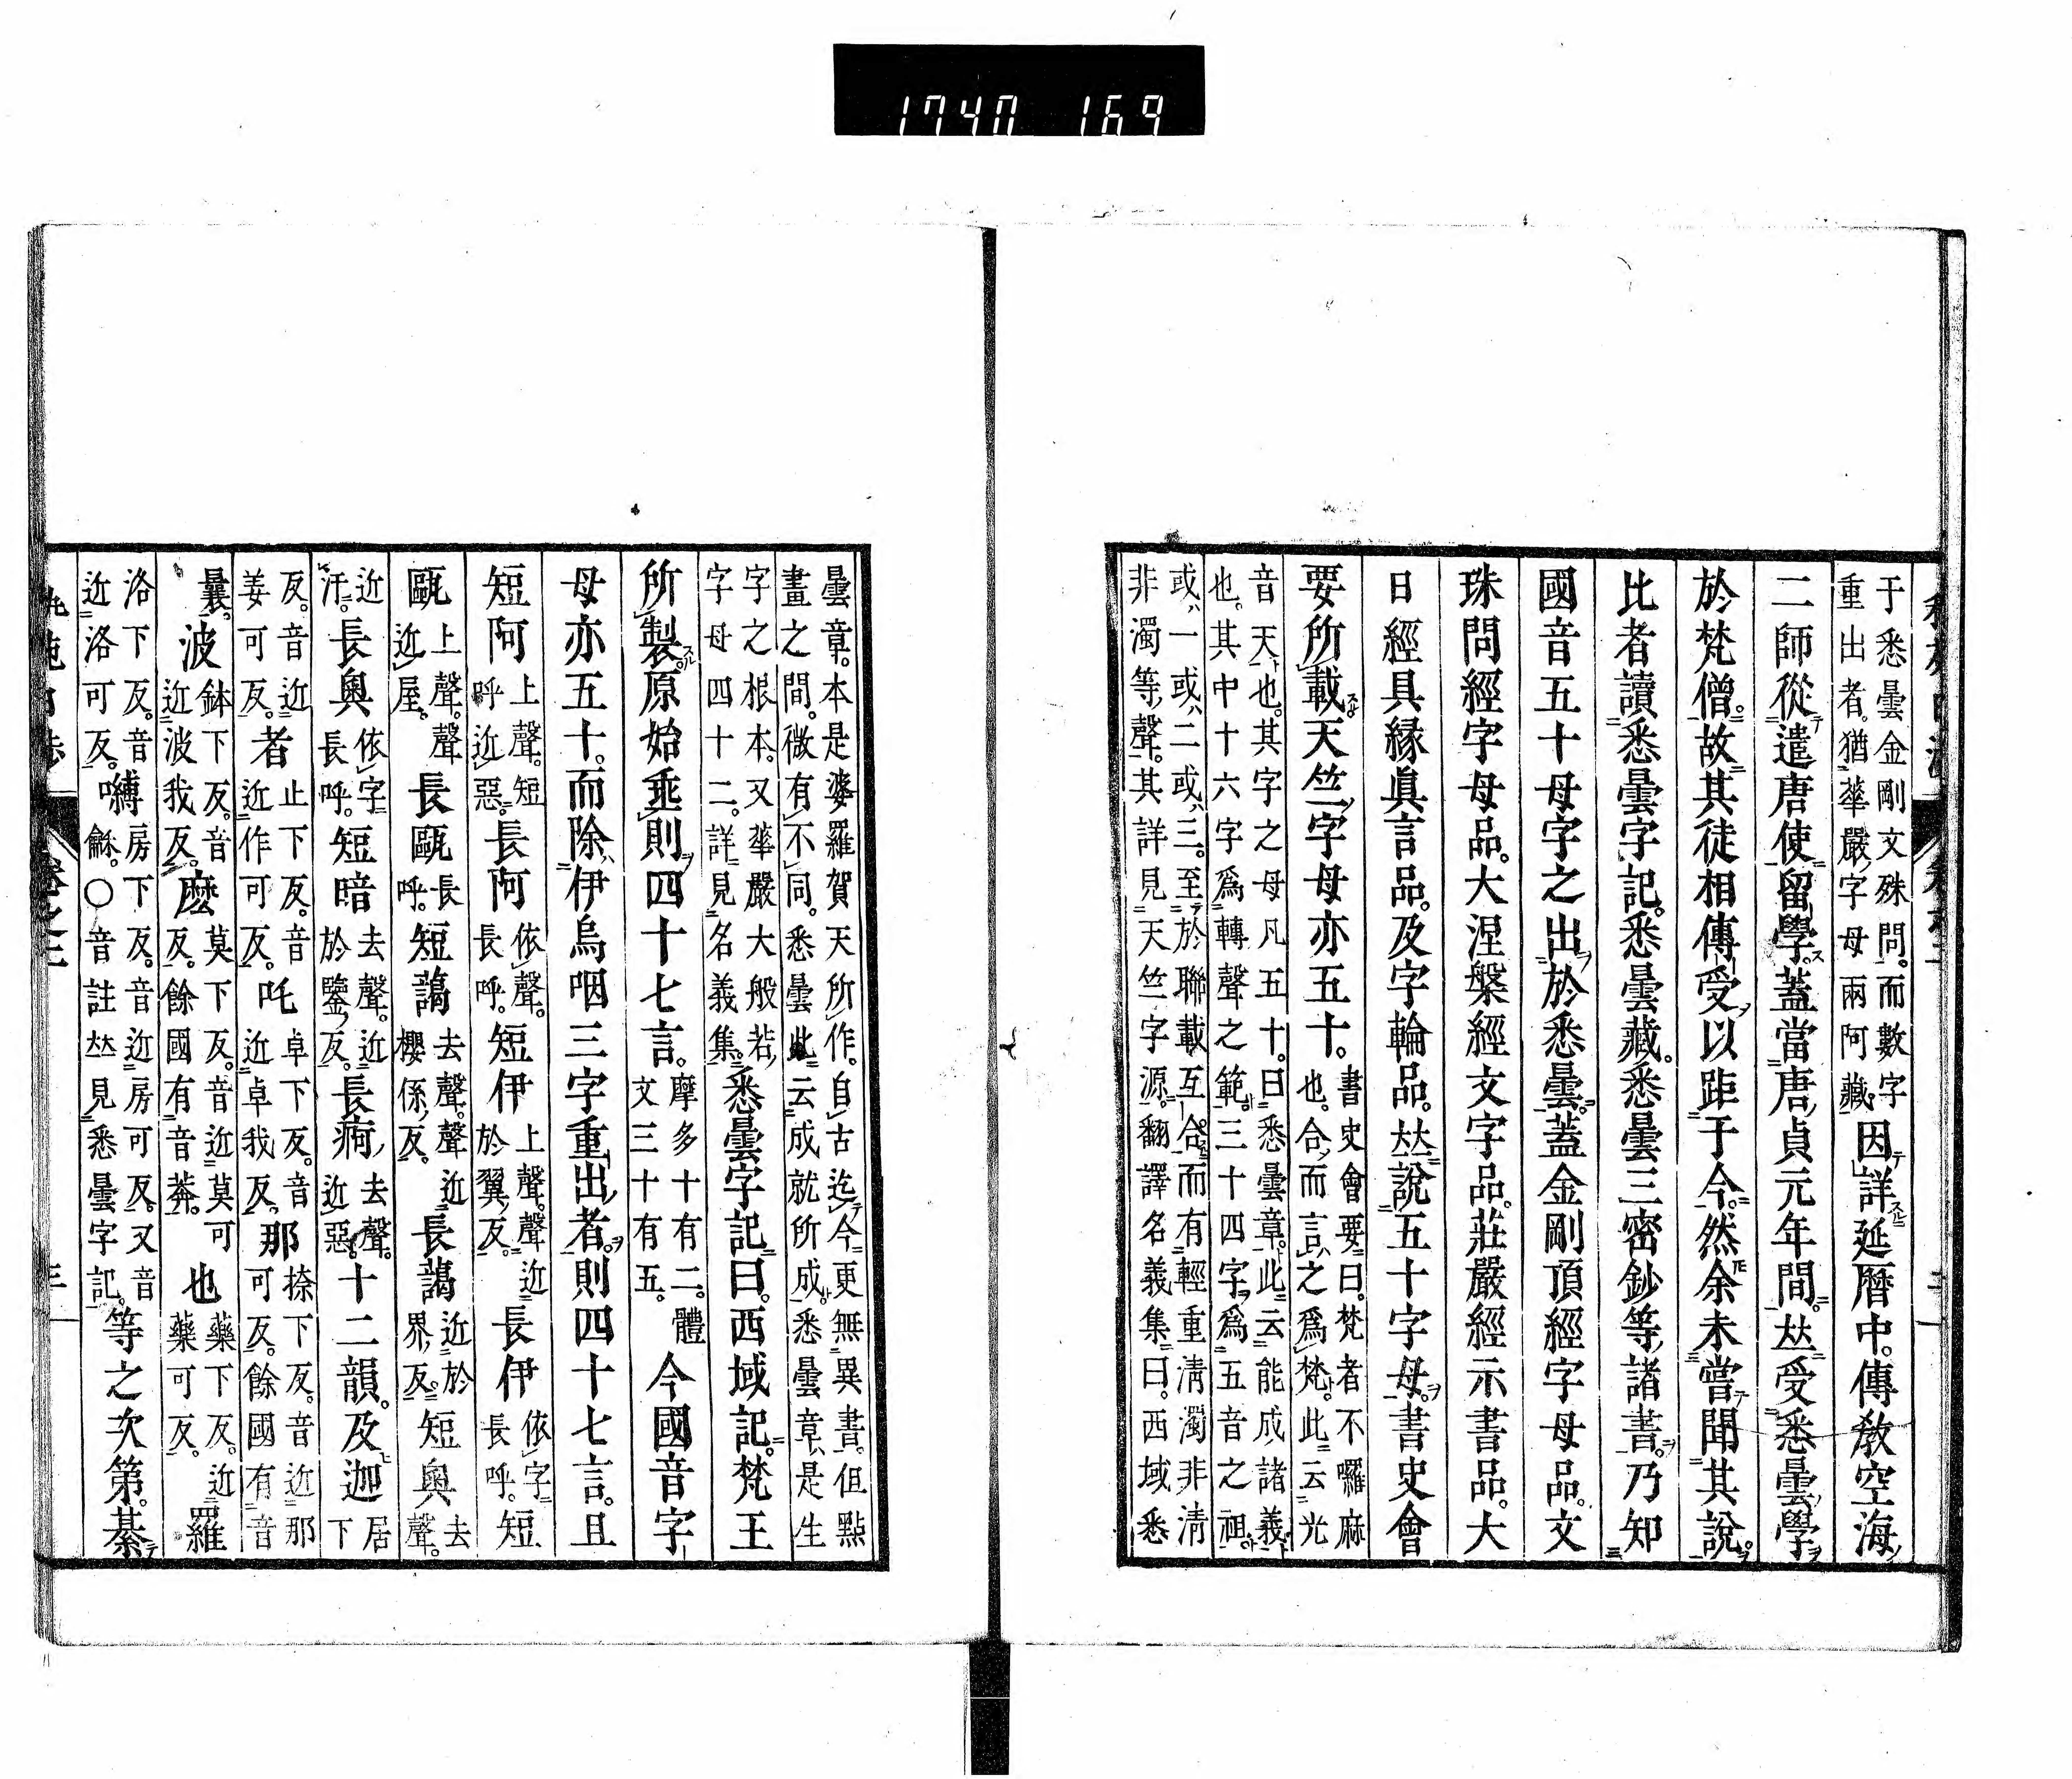 1740 169
于悉曇金剛文殊問。而數字
重出者。猶華嚴字母兩阿藏。因詳延暦中。傳教空海
二師從遣唐使留學。蓋當唐貞元年間。竝受悉曇學
於梵僧。故其徒相傳受以距于今。然余未嘗聞其說。
比者讀悉曇字記。悉曇藏。悉曇三密鈔等諸書。乃知
國音五十母字之出於悉曇。蓋金剛頂經字母品。文
珠問經字母品。大涅槃經文字品。莊嚴經示書品。大
日經具縁眞言品。及字輪品。竝說五十字母。書史會
要所載天竺字母亦五十。書史會要曰。梵者不囉麻
也。合而言之爲梵。此云光
音天也。其字之母凡五十。曰悉曇章。此云能成諸義。
也。其中十六字爲轉聲之範。三十四字爲五音之祖。
或一或二或三。至於聯載互合而有輕重清濁非清
非濁等聲。其詳見天竺字源。翻譯名義集曰。西域悉
曇章。本是婆羅賀天所作。自古迄今更無異書。但點
畫之間。微有不同。悉曇此云成就所成。悉曇章是生
字之根本。又華嚴大般若。
字母四十二。詳見名義集。悉曇字記曰。西域記。梵王
所製。原始垂則四十七言。摩多十有二。體
文三十有五。今國音字
母亦五十。而除伊烏咽三字重出者。則四十七言。且
短阿上聲。短
呼近惡。長阿依聲。
長呼。短伊上聲。聲近
於翼反。長伊依字
長呼。短
甌上聲。聲
近屋。長甌長
呼。短藹去聲。聲近
櫻係反。長藹近於
界反。短奧去
聲。
近
汙。長奧依字
長呼。短暗去聲。近
於鑒反。長痾去聲。
近惡。十二韻。及迦居
下
反。音近
姜可反。者止下反。音
近作可反。吒卓下反。音
近卓我反。那捺下反。音近那
可反。餘國有音
曩。波鉢下反。音
近波我反。麽莫下反。音近莫可
反。餘國有音莽。也藥下反。近
藥可反。羅
洛下反。音
近洛可反。嚩房下反。音近房可反。又音
龢。○音註竝見悉曇字記。等之次第。綦
卷之三
三